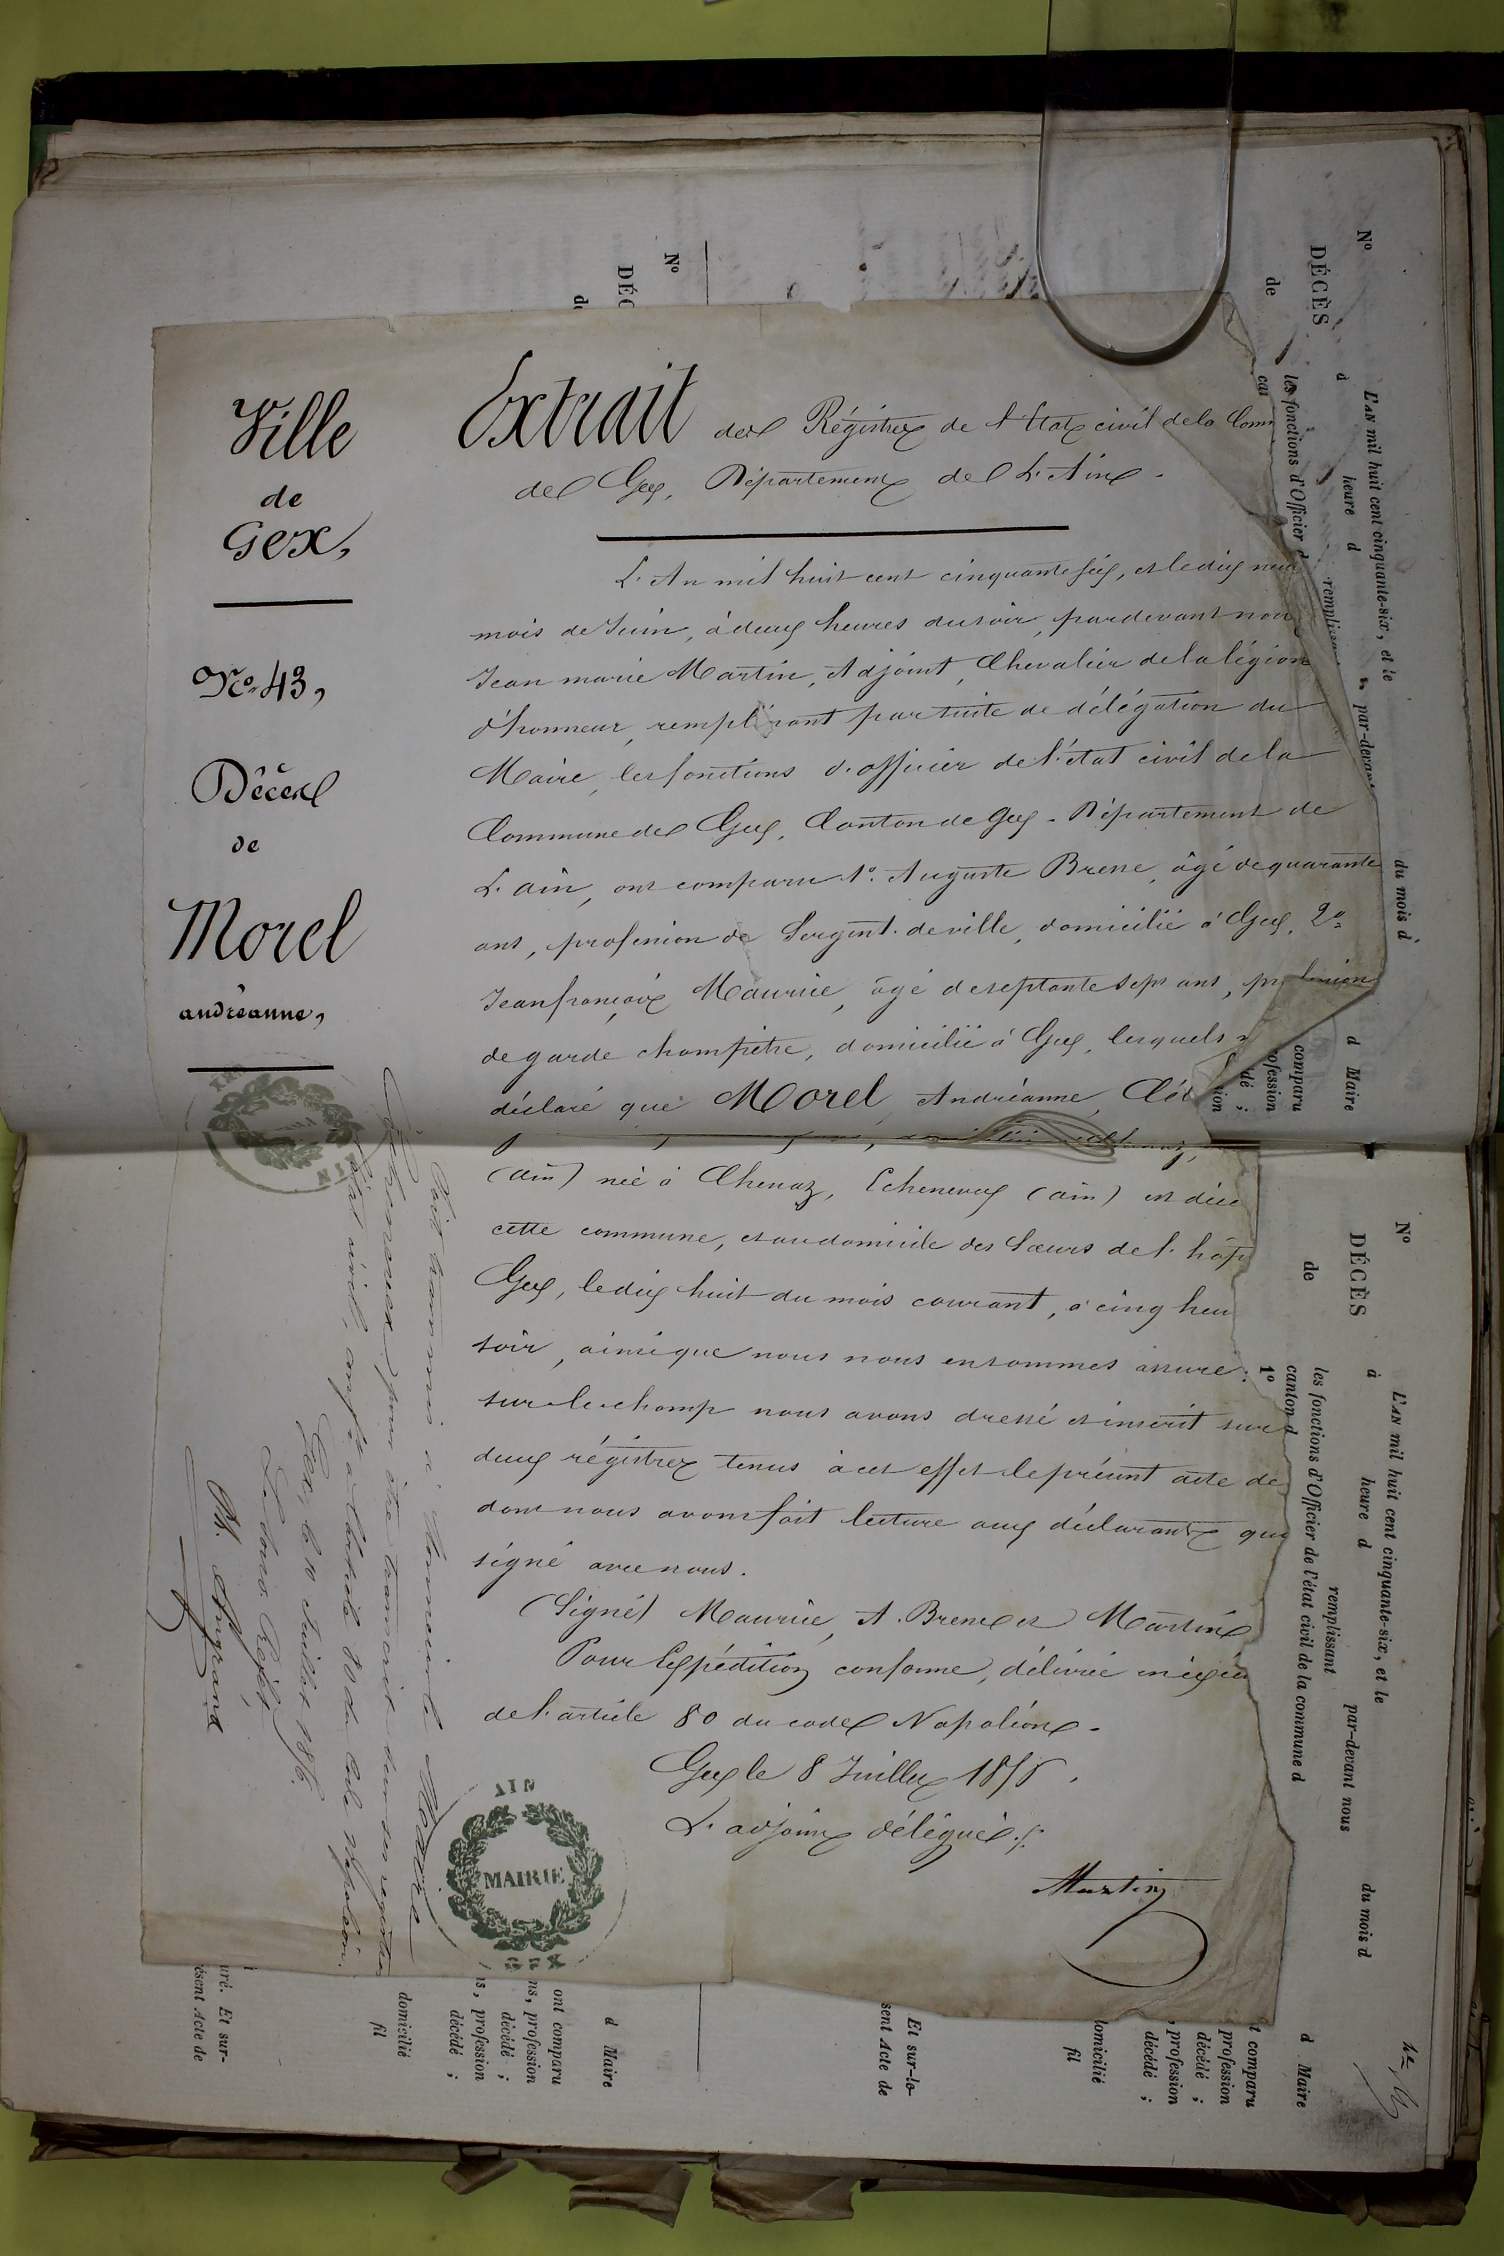 Ville
de
Gex,
No. 43,
Décès
de
Morel
andréanne,
Extrait des Régistres de l'Etat civil de la Com
de Gex, Département de L'Ain.
L'An mil huit cent cinquante six, et le dix neu
mois de Juin, à deux heures du soir, pardevant nous
Jean marie Martin, Adjoint, Chevalier de la légion
d'honneur, remplissant par suite de délégation du
Maire, les fonctions d'officier de l'état civil de la
Commune de Gex, Canton de Gex. Département de
L'ain, ont comparu 1o. Auguste Brene, âgé de quarante
ans, profession de Sergent de ville, domicilié à Gex, 2o
Jean françois Maurice, âgé de septante sept ans, profession
de garde champêtre, domicilié à Gex, lesquels
déclaré que Morel, Andréanne,
(ain) née à Chenaz, Echenevex (ain) est décé
cette commune, et au domicile des Sœurs de l'hôp
Gex, le dix huit du mois courant, à cinq heu
soir, ainsi que nous nous en sommes assuré.
sur-le-champ nous avons dressé et inscrit sur
deux régistres tenus à cet effet le présent acte de
dont nous avons fait lecture aux déclarants qui
signé avec nous.
(Signé) Maurice, A. Brene et Martin
Pour Expédition conforme, délivrée en exécu
de l'article 80 du code Napoléon.
Gex le 8 Juillet 1856.
L'adjoint délégué.
Martin
AIN
MAIRIE
GEX
Soit transmis à Monsieur le Maire
pour être transcrit sur ses registres
de l'état civil, conf. à l'article 80 du Code Napoléon.
Gex, le 10 Juillet 1856.
Le Sous Préfet,
AIN
No
DÉC
de
No
DÉCÈS
de
L'AN mil huit cent cinquante-six, et le
du mois d
à
heure d
par-devant
d Maire
remplissant
les fonctions d'Officier d
comparu
ofession
dé ;
No
DÉCÈS
de
L'AN mil huit cent cinquante-six, et le
du mois d
à
heure d
par-devant nous
d Maire
remplissant
les fonctions d'Officier de l'état civil de la commune d
canton d
1o
t comparu
profession
décédé ;
, profession
décédé ;
domicilié
fil
Et sur-le-
sent Acte de
d Maire
ont comparu
ns, profession
décédé ;
ns, profession
décédé ;
domicilié
fil
uré. Et sur-
ésent Acte de